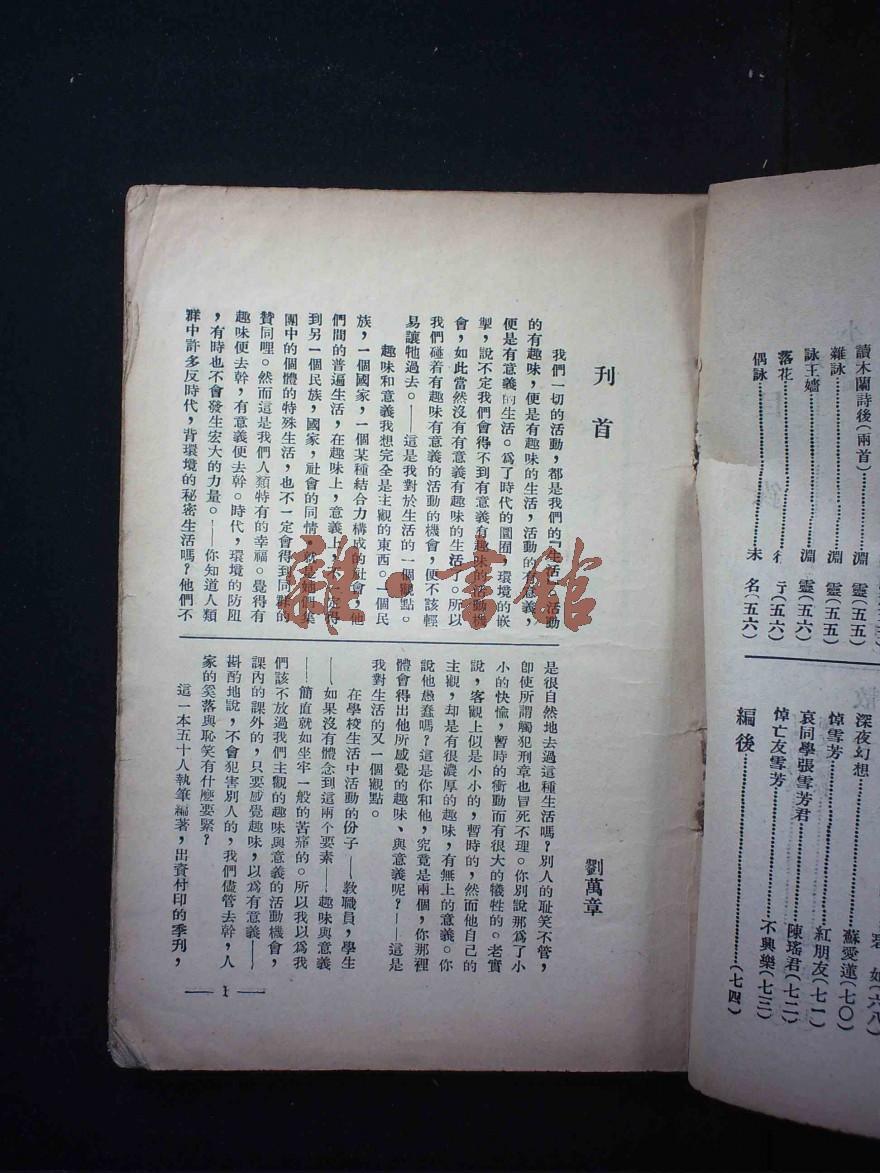 讀木蘭詩後(兩首)
雜詠……淵 靈(五五)
詠王嬙……淵 靈(五六)
落花……行 亍(五六)
偶詠……未 名(五六)
深夜幻想
悼雪芳……蘇愛蓮(七〇)
哀同學張雪芳君……紅朋友(七一)
悼亡友雪芳……陳瑤君(七二)
不興樂(七三)
編後……(七四)
刋首
劉萬章
我們一切的活動,都是我們的『生活』。活動
的有趣味,便是有趣味的生活,活動的有意義,
便是有意義的生活。爲了時代的圜囿,環境的嵌
掣,說不定我們會得不到有意義有趣味的活動機
會,如此當然沒有有意義有趣味的生活了。所以
我們碰着有趣味有意義的活動的機會,便不該輕
易讓牠過去。——這是我對於生活的一個觀點。
趣味和意義我想完全是主觀的東西。一個民
族,一個國家,一個某種結合力構成的社會,他
們間的普遍生活,在趣味上,意義上,不一定得
到另一個民族,國家,社會的同情,就是她們集
團中的個體的特殊生活,也不一定會得到同群的
贊同哩。然而這是我們人類特有的幸福。覺得有
趣味便去幹,有意義便去幹。時代,環境的防阻
,有時也不會發生宏大的力量。——你知道人類
群中許多反時代,背環境的秘密生活嗎?他們不
是很自然地去過這種生活嗎?別人的耻笑不管,
卽使所謂觸犯刑章也冒死不理。你別說那爲了小
小的快愉,暫時的衝動而有很大的犧牲的。老實
說,客觀上似是小小的,暫時的,然而他自己的
主觀,却是有很濃厚的趣味,有無上的意義。你
說他愚蠢嗎?這是你和他,究竟是兩個,你那裡
體會得出他所感覺的趣味、與意義呢?——這是
我對生活的又一個觀點。
在學校生活中活動的份子——教職員,學生
——如果沒有體念到這兩個要素——趣味與意義
——簡直就如坐牢一般的苦痛的。所以我以爲我
們該不放過我們主觀的趣味與意義的活動機會,
課內的課外的,只要感覺趣味,以爲有意義——
斟酌地說,不會犯害別人的,我們儘管去幹,人
家的奚落與恥笑有什麼要緊?
這一本五十人執筆編著,出資付印的季刋,
— 1 —
雜·書館